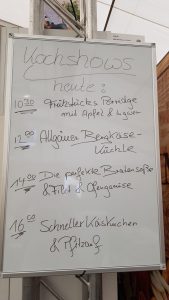 Kochshows
heute:
10³⁰ Frühstücks Porridge
mit Apfel & Ingwer
12⁰⁰ Allgäuer Bergkäse-
Küchle
14⁰⁰ Die perfekte Bratensoße
& Filet & Ofengemüse
16⁰⁰ Schneller Käskuchen
& Pfitzauf